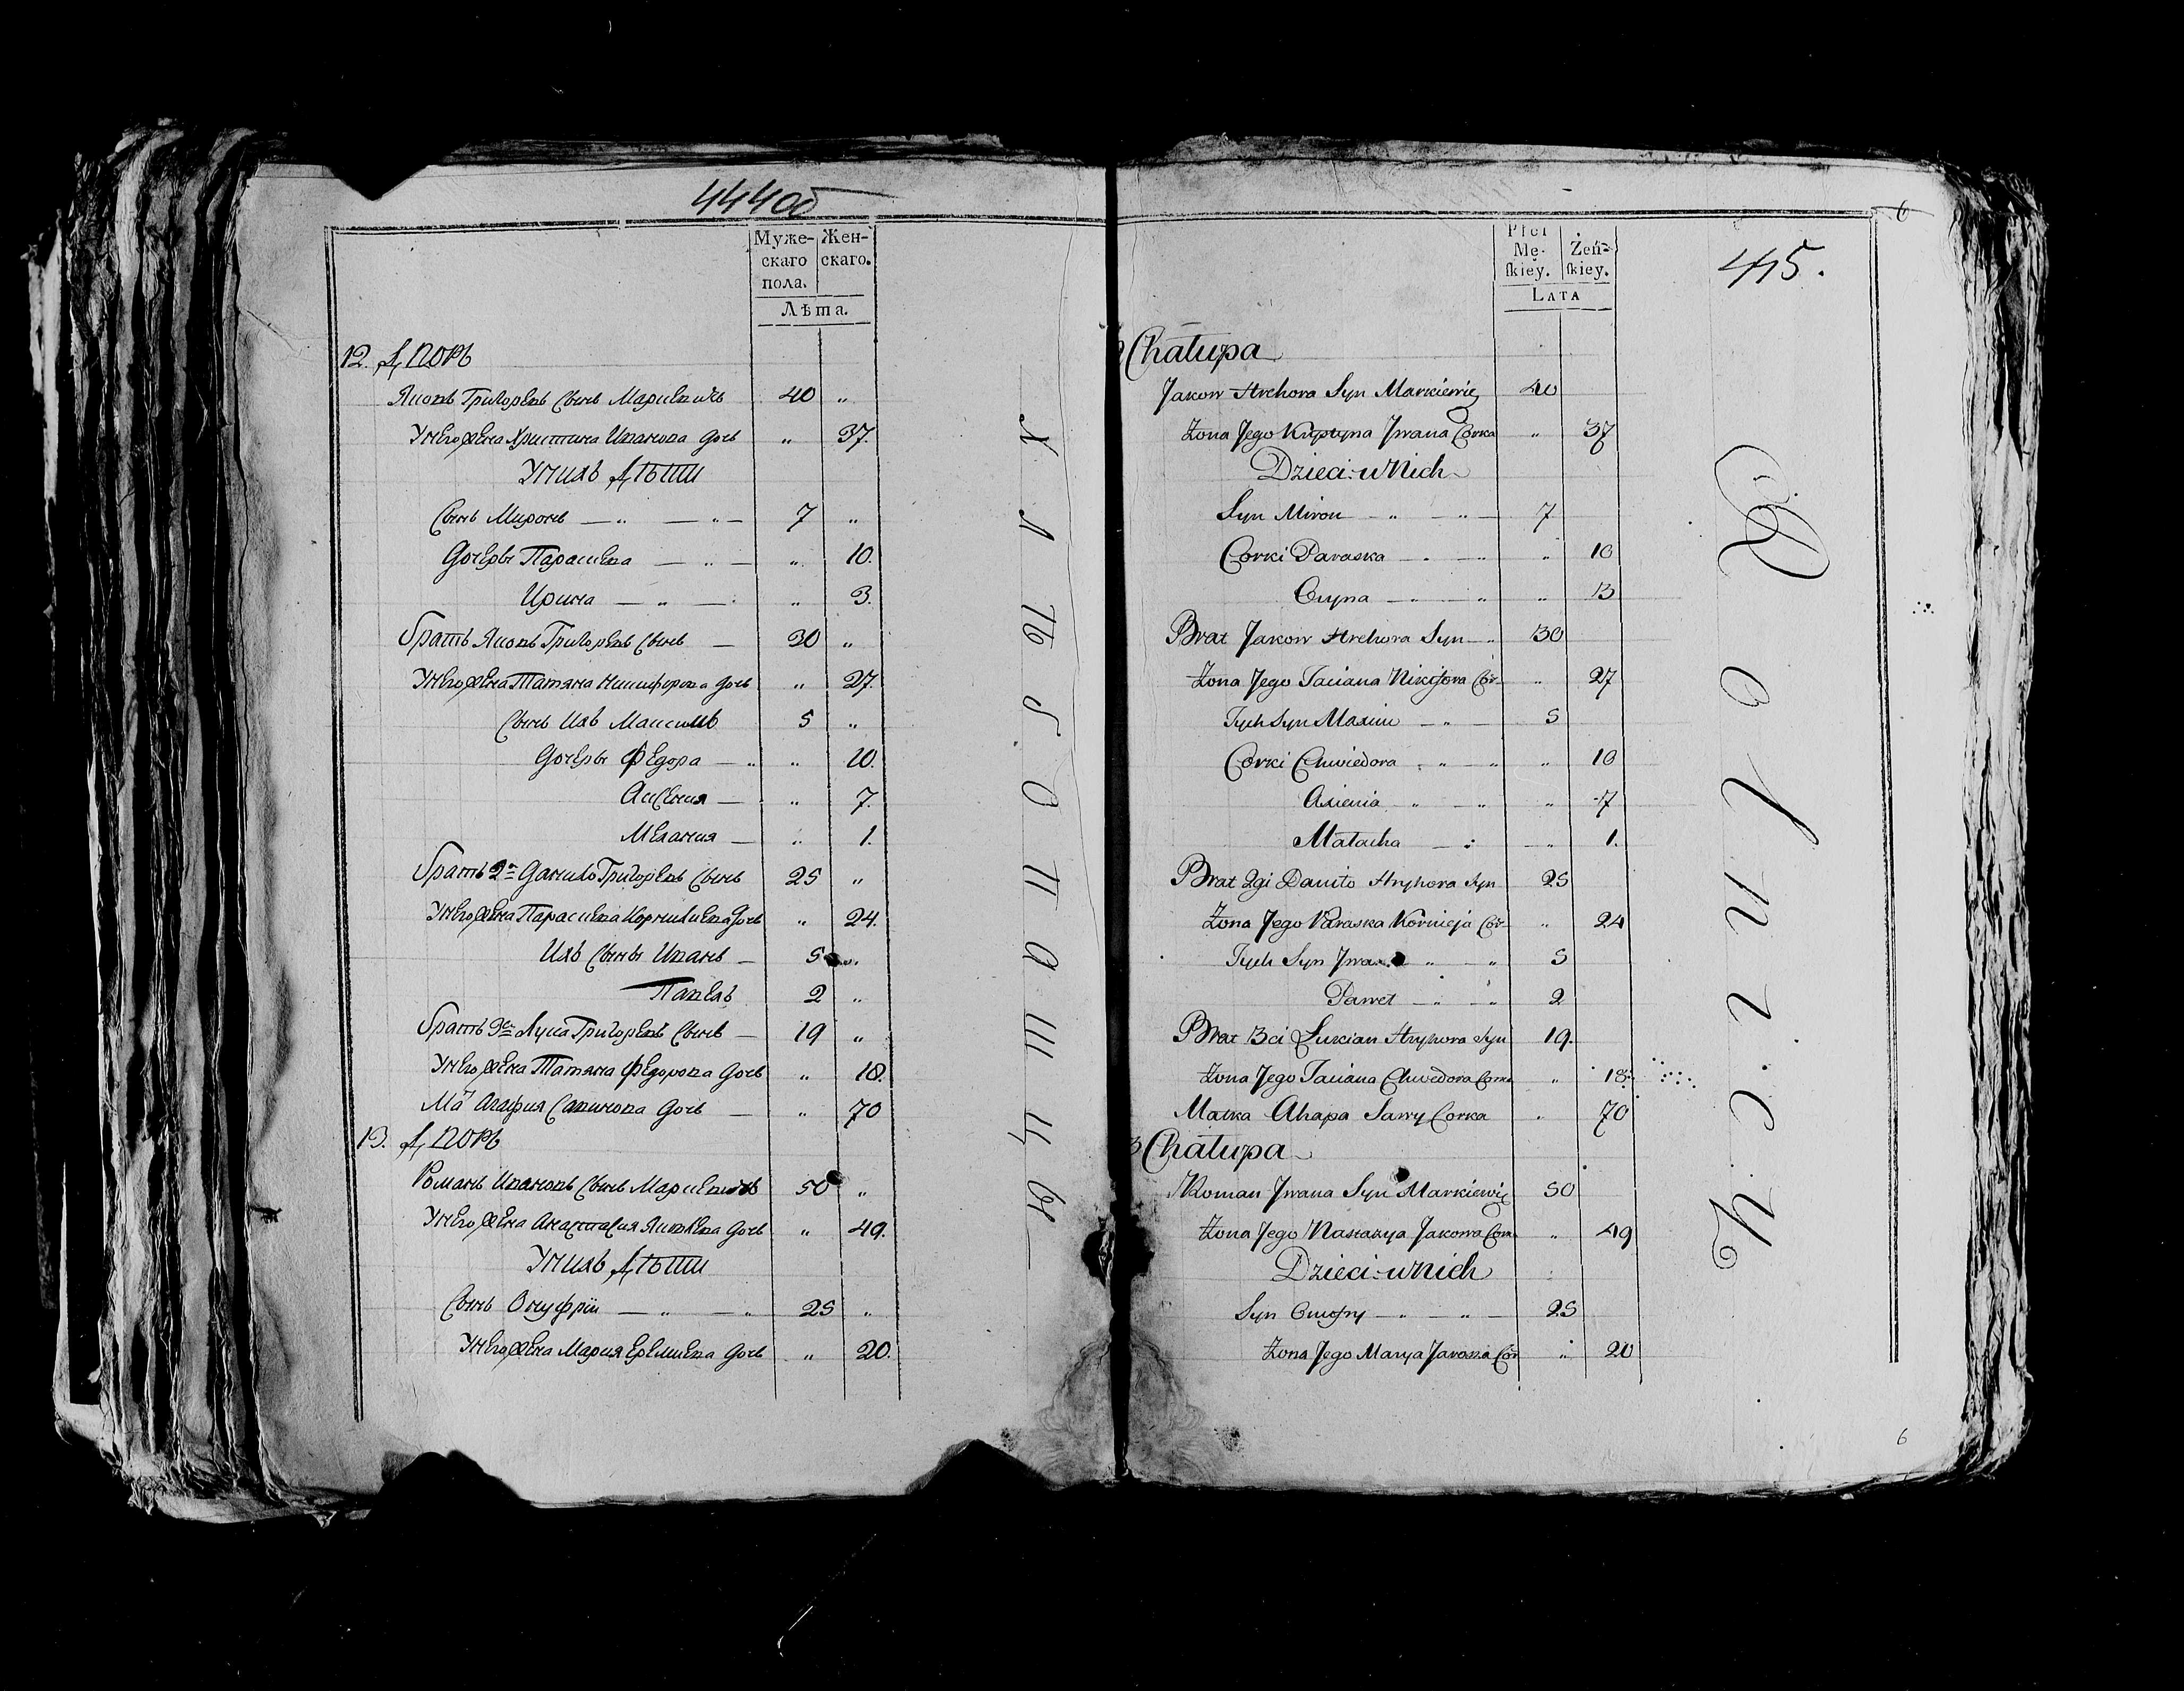 444об
Муже- Жен-
скаго скаго.
пола.
Лѣта.
12. Дворъ
Яковъ Григорьевъ Сынъ Маркевичъ 40 "
У него жена Христина Иванова дочь " 37.
У нихъ Дѣти
Сынъ Миронъ — " — " — 7 "
Дочеры Параскева — " — " 10.
Ирина — " — " 3.
Братъ Яковъ Григорьевъ Сынъ — 30 "
У него жена Татяна Никифорова дочь " 27.
Сынъ ихъ Максимъ 5 "
Дочеры Федора — " " 10.
Аксения — " 7.
Мелания — " 1.
Братъ 2й Данило Григорьевъ Сынъ 25 "
У него жена Параскева Корнилиева дочь " 24.
Ихъ Сыны Иванъ — 5 "
Павелъ 2 "
Братъ 3й Лука Григорьевъ Сынъ — 19 "
У него жена Татяна Федорова дочь " 18.
Агафия Савинова дочь — " 70
13. Дворъ
Романъ Ивановъ Сынъ Маркевичъ 50 "
У него жена Анастасия Яковлева дочь " 49.
У нихъ Дѣти
Сынъ Онуфрій — " — " 25 "
У него жена Мария Еремиева дочь " 20.
Хлѣбопашцы
Płci
Mę- Żeń-
skiey. skiey.
Lata
415.
6
Chałupa
Jakow Hrehora Syn Markiewicz 40
Żona Jego Krystyna Jwana Corka " 37
Dzieci u Nich
Syn Miron — " — " — 7
Corki Paraska — " — " " 10
Oryna — " — " " 3
Brat Jakow Hrehora Syn — " 30
Żona Jego Taciana Nikifora Cor " 27
Tych Syn Maxim — " — 5
Corki Chwiedora " — " " 10
Axienia " — " " 7
Małacha — " — " 1.
Brat 2gi Daniło Hryhora Syn 25
Żona Jego Paraska Kornieja Cor " 24
Tych Syn Jwan " — " 5
Paweł — " — " 2
Brat 3ci Łukian Hryhora Syn 19.
Żona Jego Taciana Chwedora Corka " 18.
Matka Ahapa Sawy Corka " 70
3 Chałupa
Roman Jwana Syn Markiewicz 50
Żona Jego Nastazya Jakowa Cork " 49
Dzieci u nich
Syn Onufry — " — " — 25
Żona Jego Marya Cór " 20
Rolnicy
6